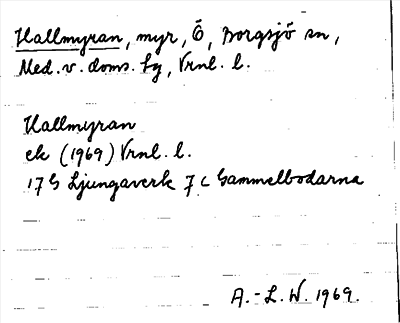 Hallmyran, myr, Ö, Borgsjö sn,
Med. v. doms. hg, Vrnl. l.
Hallmyran
ek (1969) Vrnl. l.
17G Ljungaverk 7c Gammelbodarna
A.-L. W. 1969.